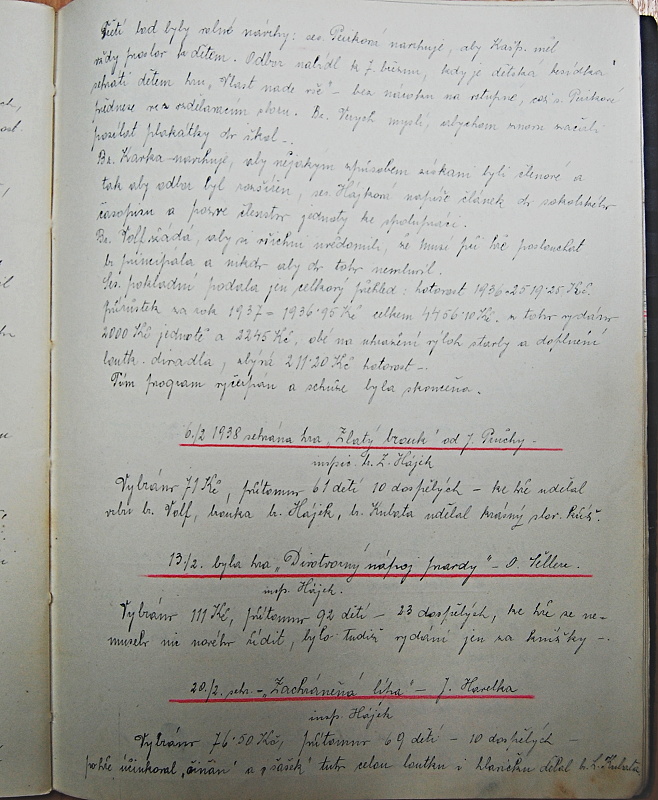 Třetí bod byly volné návrhy: ses. Peučková navrhuje, aby Kašp. měl
vždy proslov k dětem. Odbor nabídl k 7. březnu, kdy je dětská besídka
sehráti dětem hru „Vlast nade vše" – bez nároku na vstupné, což s. Peučková
přednese ve vzdělávacím sboru. Br. Verych myslí, abychom znovu začali
posílat plakátky do škol –.
Br. Karka navrhuje, aby nějakým způsobem získáni byli členové a
tak aby odbor byl rozšířen, ses. Hájková napíše článek do sokolského
časopisu a pozve členstvo jednoty ke spolupráci.
Br. Volf žádá, aby si všichni uvědomili, že musí při hře poslouchat
br. principála a nikdo aby do toho nemluvil.
Ses. pokladní podala jen celkový přehled: hotovost 1936 - 2519·25 Kč.
přírůstek za rok 1937 = 1936·95 Kč celkem 4456·10 Kč. z toho vydáno
2000 Kč jednotě a 2245 Kč, obé na uhražení výloh stavby a doplnění
loutk. divadla, zbývá 211·20 Kč hotovost –.
Tím program vyčerpán a schůze byla skončena.
6./2 1938 sehrána hra „Zlatý brouk" od J. Průchy –
inspic. br. Z. Hájek
Vybráno 71 Kč, přítomno 61 dětí 10 dospělých – ke hře udělal
vrbu br. Volf, brouka br. Hájek, br. Kubata udělal krásný slov. kroj.
13./2. byla hra „Divotvorný nápoj pravdy" – O. Sellera.
insp. Hájek.
Vybráno 111 Kč, přítomno 92 dětí – 23 dospělých, ke hře se ne-
muselo nic nového řídit, bylo tudíž vydání jen za knížky –.
20./2. sehr. – „Zachráněná líha" – J. Havelka
insp. Hájek
Vybráno 76·50 Kč, přítomno 69 dětí – 10 dospělých –
po hře účinkoval „číňan" a „šašek" tuto celou loutku i hlavičku dělal br. L. Kubata